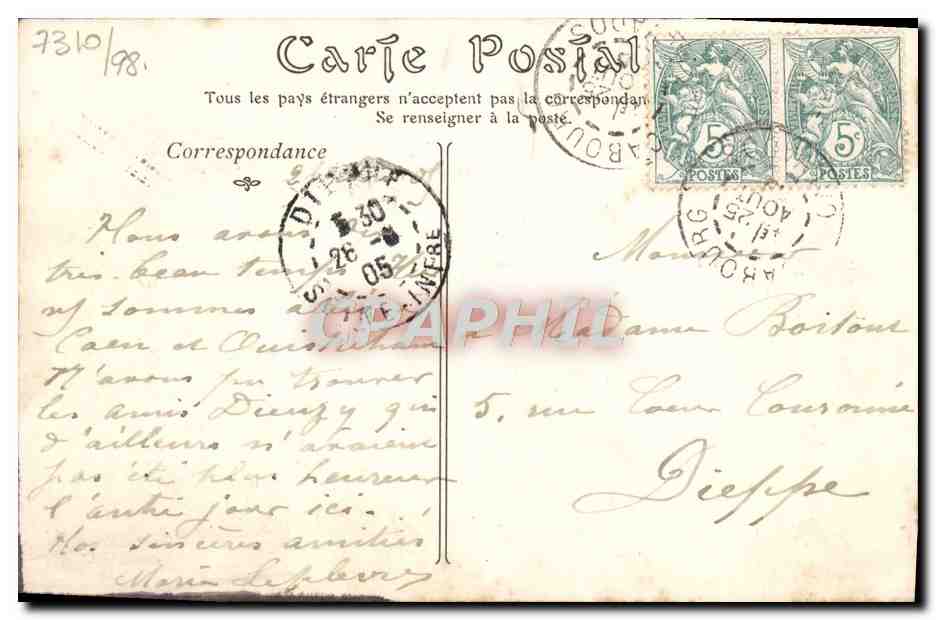 7310/98.
Carte Postale
Tous les pays étrangers n'acceptent pas la correspondan
Se renseigner à la poste.
Correspondance
5c
POSTES
5c
POSTES
CABOURG
25
AOUT
DIEPPE
5 30
26 -8
05
SEINE-INFRE
Nous avons
très beau temps
sommes allés
Caen et Ouistreham
N'avons pu trouver
les amis Dieuzy qui
d'ailleurs n'avaient
pas été plus heureux
l'autre jour ici.
Nos sincères amitiés
Marie Lefebvre
Monsieur
Madame Boitout
5, rue Coeur Couronné
Dieppe
CPAPHIL